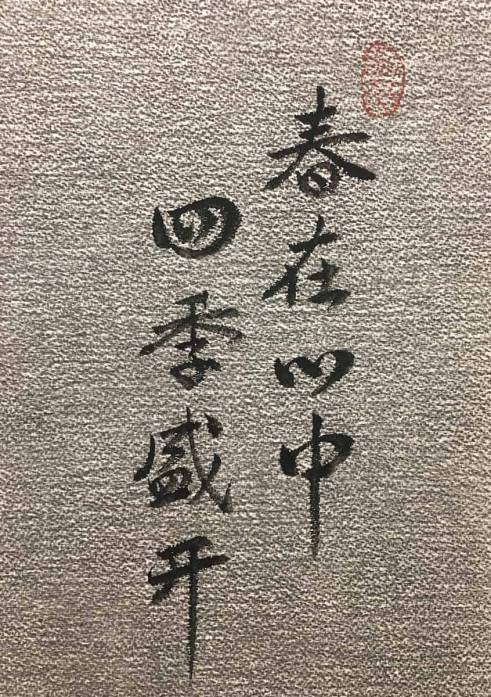 春在心中
四季盛开